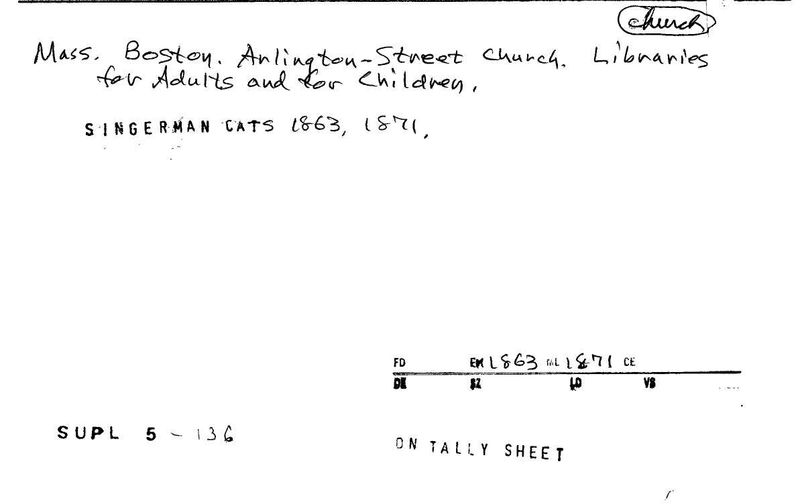 church
Mass. Boston. Arlington-Street Church. Libraries
for Adults and for Children.
SINGERMAN CATS 1863, 1871.
FD EM 1863 ML 1871 CE
DE SZ LD VS
SUPL 5 - 136
ON TALLY SHEET